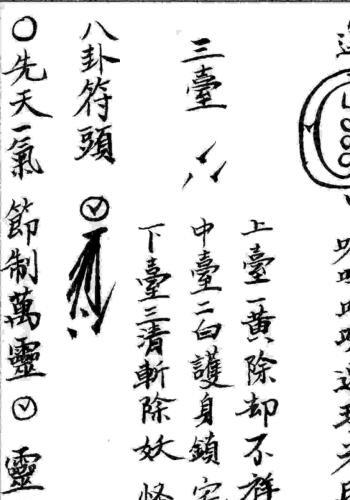 三臺
上臺一黃除却不祥
中臺二白護身鎖
下臺三清斬除妖怪
八卦符頭
先天一氣 節制萬靈 靈